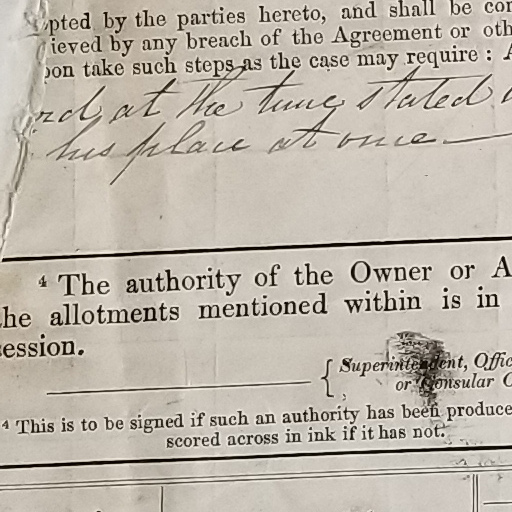 pted by the parties hereto, and shall be cor
ieved by any breach of the Agreement or oth
on take such steps as the case may require : A
rd at the time stated
his place at once
⁴ The authority of the Owner or A
he allotments mentioned within is in
ession.
{ Superintendent, Offic
or Consular O
⁴ This is to be signed if such an authority has been produce
scored across in ink if it has not.